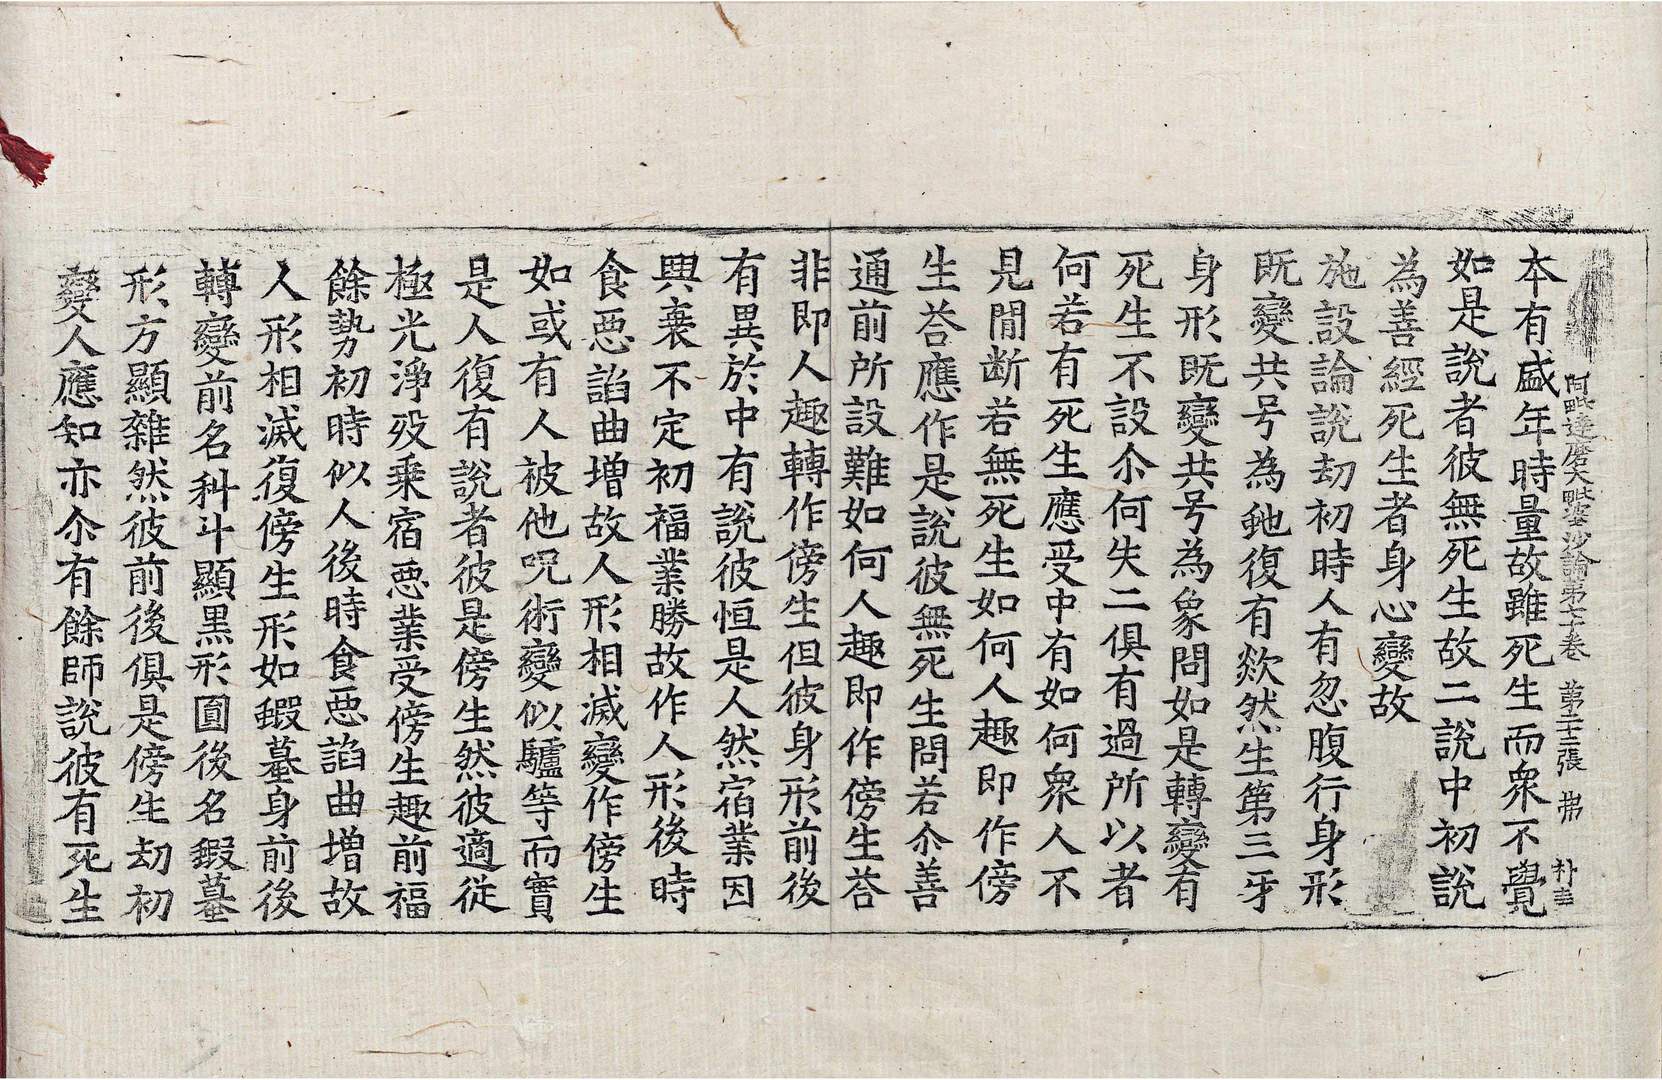 阿毗達磨大毗婆沙論第七十卷 第二十三張 弗
本有盛年時量故雖死生而衆不覺
如是說者彼無死生故二說中初說
為善經死生者身心變故
施設論說劫初時人有忽腹行身形
旣變共号為虵復有欻然生第三牙
身形旣變共号為象問如是轉變有
死生不設尒何失二俱有過所以者
何若有死生應受中有如何衆人不
見閒断若無死生如何人趣即作傍
生荅應作是說彼無死生問若尒善
通前所設難如何人趣即作傍生荅
非即人趣轉作傍生但彼身形前後
有異於中有說彼恒是人然宿業因
興衰不定初福業勝故作人形後時
食惡諂曲增故人形相滅變作傍生
如或有人被他呪術變似驢等而實
是人復有說者彼是傍生然彼適從
極光淨歿乘宿惡業受傍生趣前福
餘勢初時似人後時食惡諂曲增故
人形相滅復傍生形如蝦蟇身前後
轉變前名科斗顯黑形圓後名蝦蟇
形方顯雜然彼前後俱是傍生劫初
變人應知亦尒有餘師說彼有死生